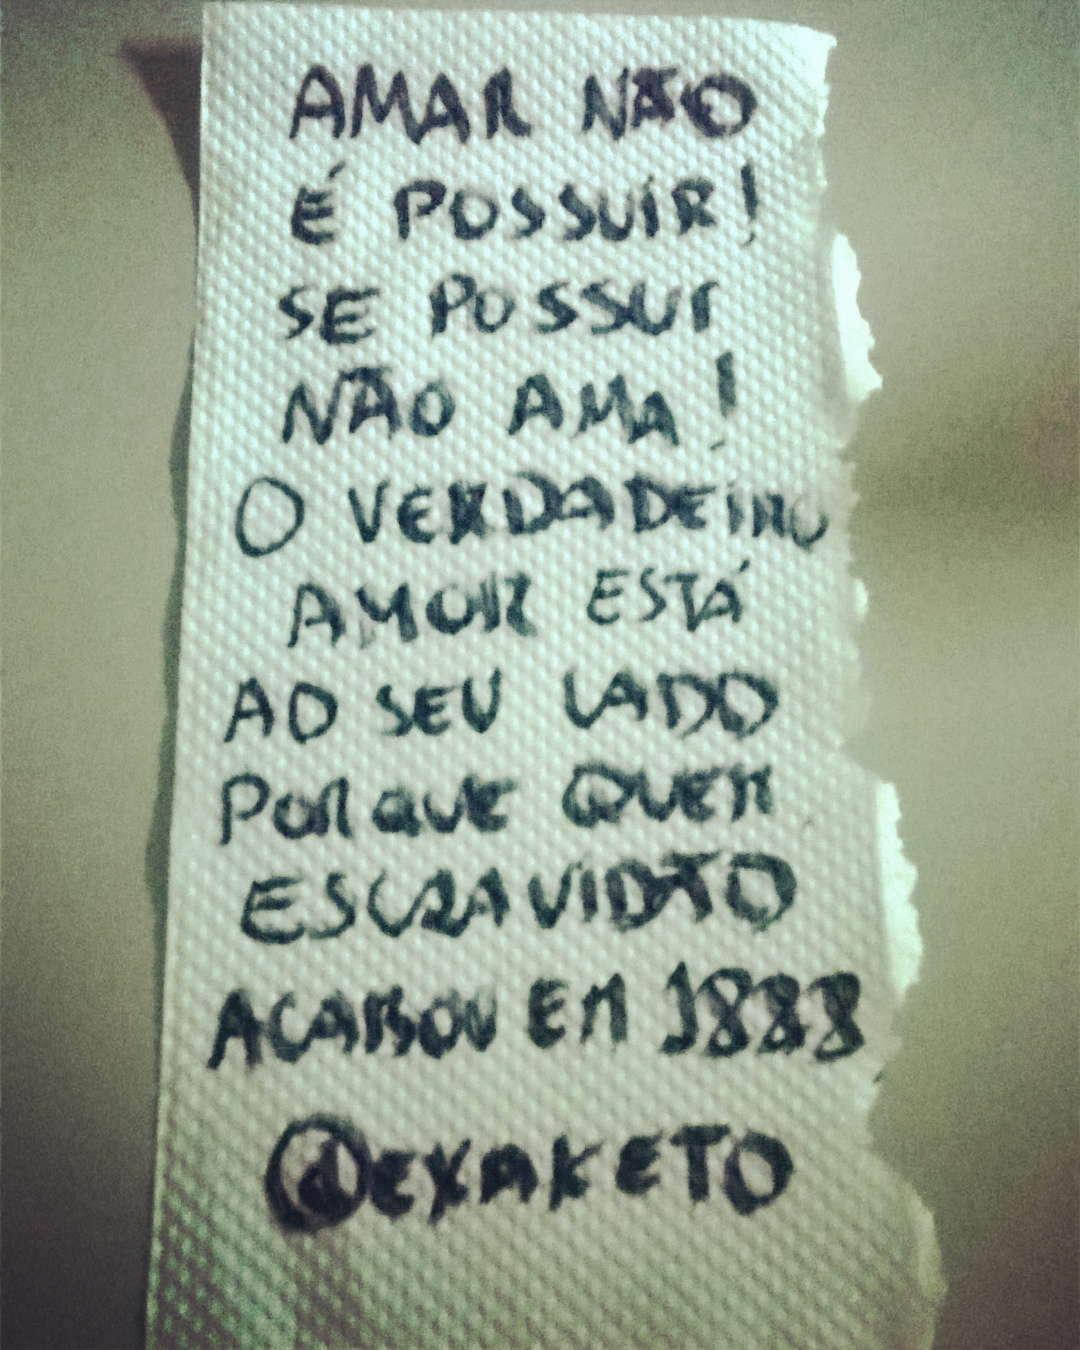 AMAR NÃO
É POSSUIR!
SE POSSUI
NÃO AMA!
O VERDADEIRO
AMOR ESTÁ
AO SEU LADO
PORQUE QUER
ESCRAVIDÃO
ACABOU EM 1888
@EXAKETO